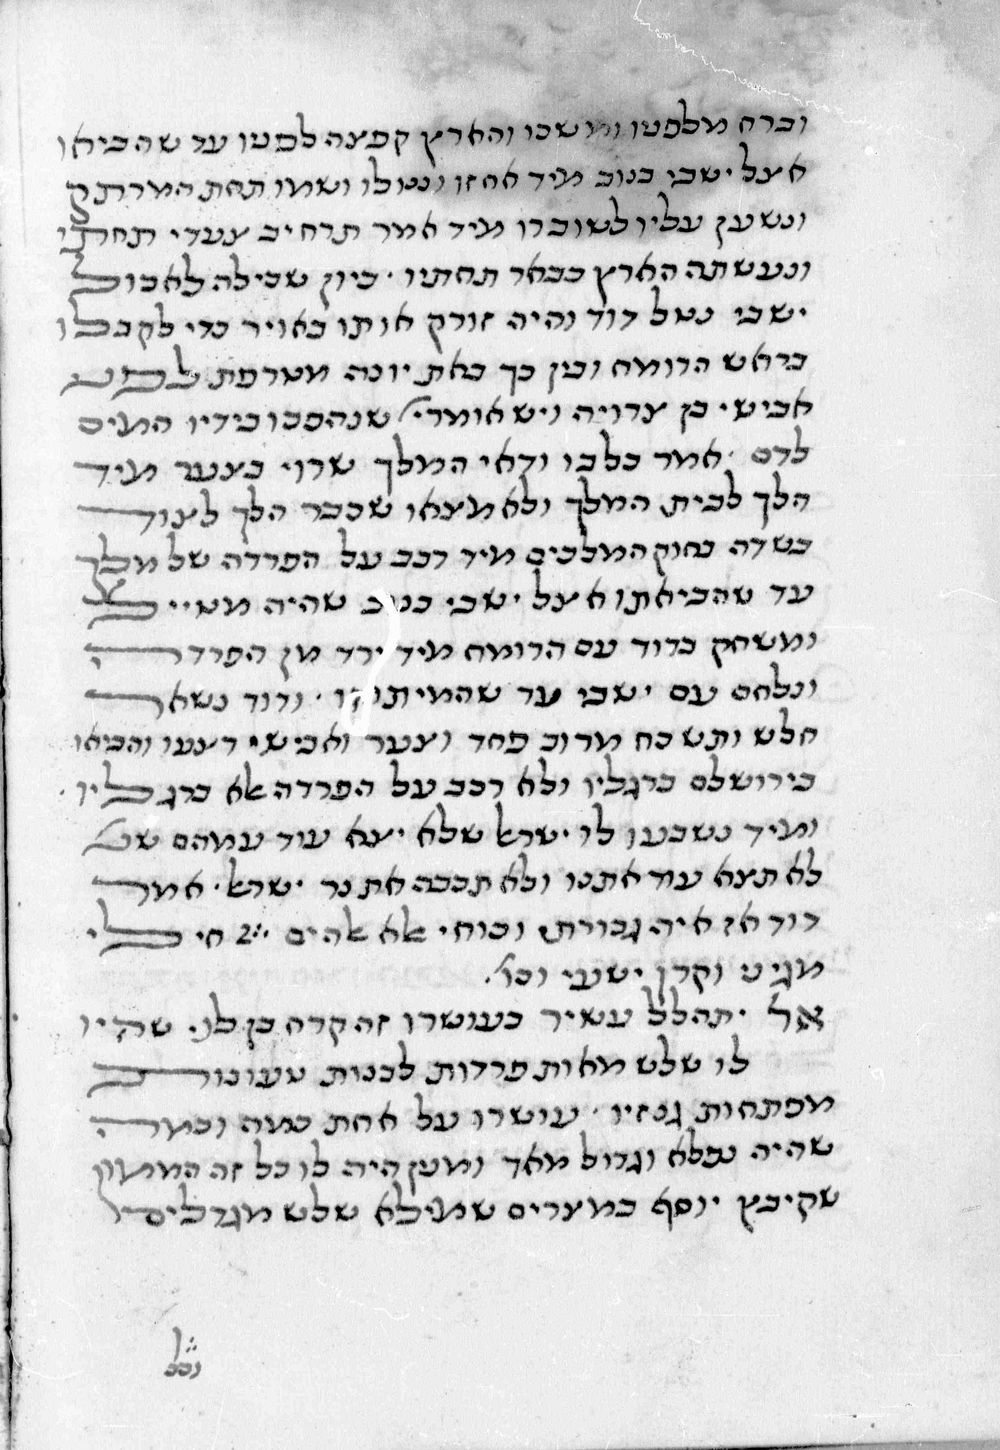 וברח מלפניו ומשכו והארץ קפצה לפניו עד שהביאו
אצל ישבי בנוב מיד אחזו ונטלו ושמו תחת המרתק
ונשען עליו לשוברו מיד אמר תרחיב צעדי תחתי
ונעשתה הארץ כבאר תחתיו · כיון שכילה לאכול
ישבי נטל דוד והיה זורק אותו באויר כדי לקבלו
בראש הרומח ובין כך באת יונה מטרפת לפני
אבישי בן צרויה ויש אומרי' שנהפכו בידיו המים
לדם · אמר בלבו ודאי המלך שרוי בצער מיד
הלך לבית המלך ולא מצאו שכבר הלך לצוד
בשדה כחוק המלכים מיד רכב על הפרדה של מלך
עד שהביאתו אצל ישבי בנוב שהיה מטייל
ומשחק בדוד עם הרומח מיד ירד מן הפרדה
ונלחם עם ישבי עד שהמיתוהו · ודוד נשאר
חלש ותש כח מרוב פחד וצער ואבישי רצעו והביאו
בירושלם ברגליו ולא רכב על הפרדה אלא ברגליו ·
ומיד נשבעו לו ישראל שלא יצא עוד עמהם שנ'
לא תצא עוד אתנו ולא תכבה את נר ישראל · אמר
דוד אז איה גבורתי וכוחי אלא אלהים צור חי כלי
מגיני וקרן ישעי וכו' ·
אל יתהלל עשיר בעושרו זה קרח בן לוי שהיו
לו שלש מאות פרדות לבנות טעונות
מפתחות גנזיו · עושרו על אחת כמה וכמה
שהיה נפלא וגדול מאד ומנין היה לו כל זה הממון
שקיבץ יוסף במצרים שמילא שלש מגדלים